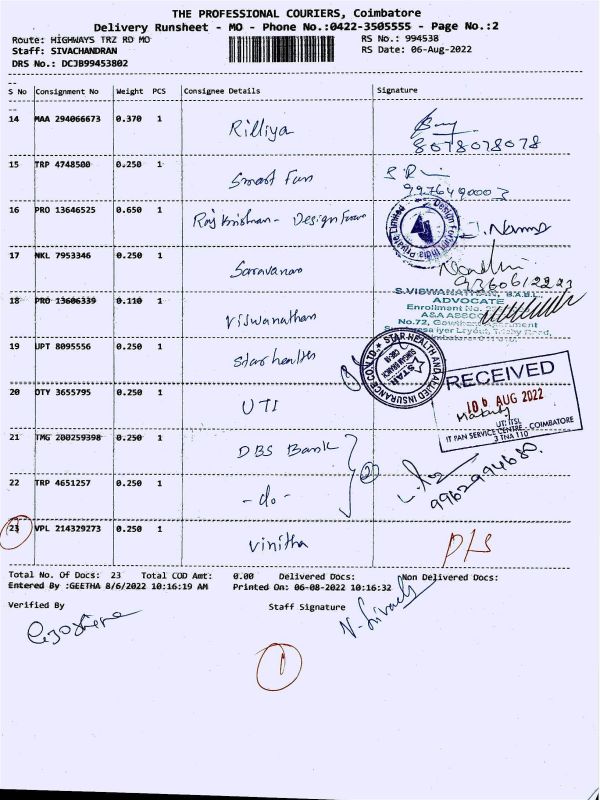 THE PROFESSIONAL COURIERS, Coimbatore
Delivery Runsheet - MO - Phone No.:0422-3505555 - Page No.:2
Route: HIGHWAYS TRZ RD MO RS No.: 994538
Staff: SIVACHANDRAN RS Date: 06-Aug-2022
DRS No.: DCJB99453802
S No Consignment No Weight PCS Consignee Details Signature
14 MAA 294066673 0.370 1 Rilliya
8078078078
15 TRP 4748500 0.250 1 Smart Fun
9976490003
16 PRO 13646525 0.650 1 Raj Krishnan - Design Forum
Design Forum India Private Limited
17 NKL 7953346 0.250 1 Saravanan
9360612223
18 PRO 13606339 0.110 1 Viswanathan
S.VISWANATHAN, B.A.B.L.
ADVOCATE
Enrollment No.
A&A ASSOC
No.72,
19 UPT 8095556 0.250 1 Star health
STAR HEALTH AND ALLIED INSURANCE CO.LTD.
STAR
20 OTY 3655795 0.250 1 UTI
RECEIVED
06 AUG 2022
UTI ITSL
IT PAN SERVICE CENTRE - COIMBATORE
3 TNA 110
21 TMG 200259398 0.250 1 DBS Bank
22 TRP 4651257 0.250 1 -do-
2
9962994680
23 VPL 214329273 0.250 1 Vinitha
Total No. Of Docs: 23 Total COD Amt: 0.00 Delivered Docs: Non Delivered Docs:
Entered By :GEETHA 8/6/2022 10:16:19 AM Printed On: 06-08-2022 10:16:32
Verified By Staff Signature
N. Sivach
1